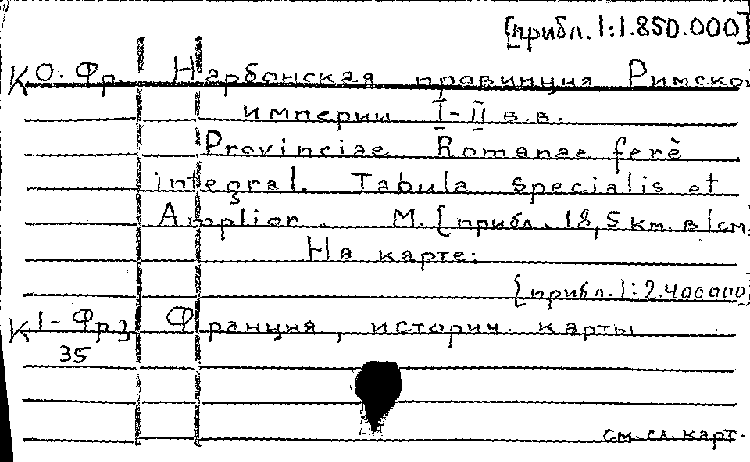 [прибл. 1:1.850.000]
К О. Фр. Нарбонская провинция Римской
империи I-II в.в.
Provinciae Romanae ferè
integral. Tabula specialis et
Amplior. М. [прибл. 18,5 км. в 1 см.
На карте:
[прибл. 1:2.400000]
К 1-Фр] Франция, историч. карты
35
см. сл. карт.